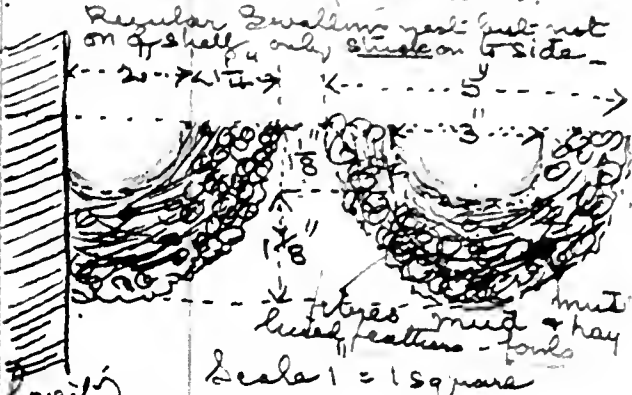 Regular Swallows nest but not
on a shelf, only stuck on to side
2" 1/4 5"
3"
1 1/8"
1 3/8"
mud
lined feathers - fowls mud & hay
Scale 1" = 1 square